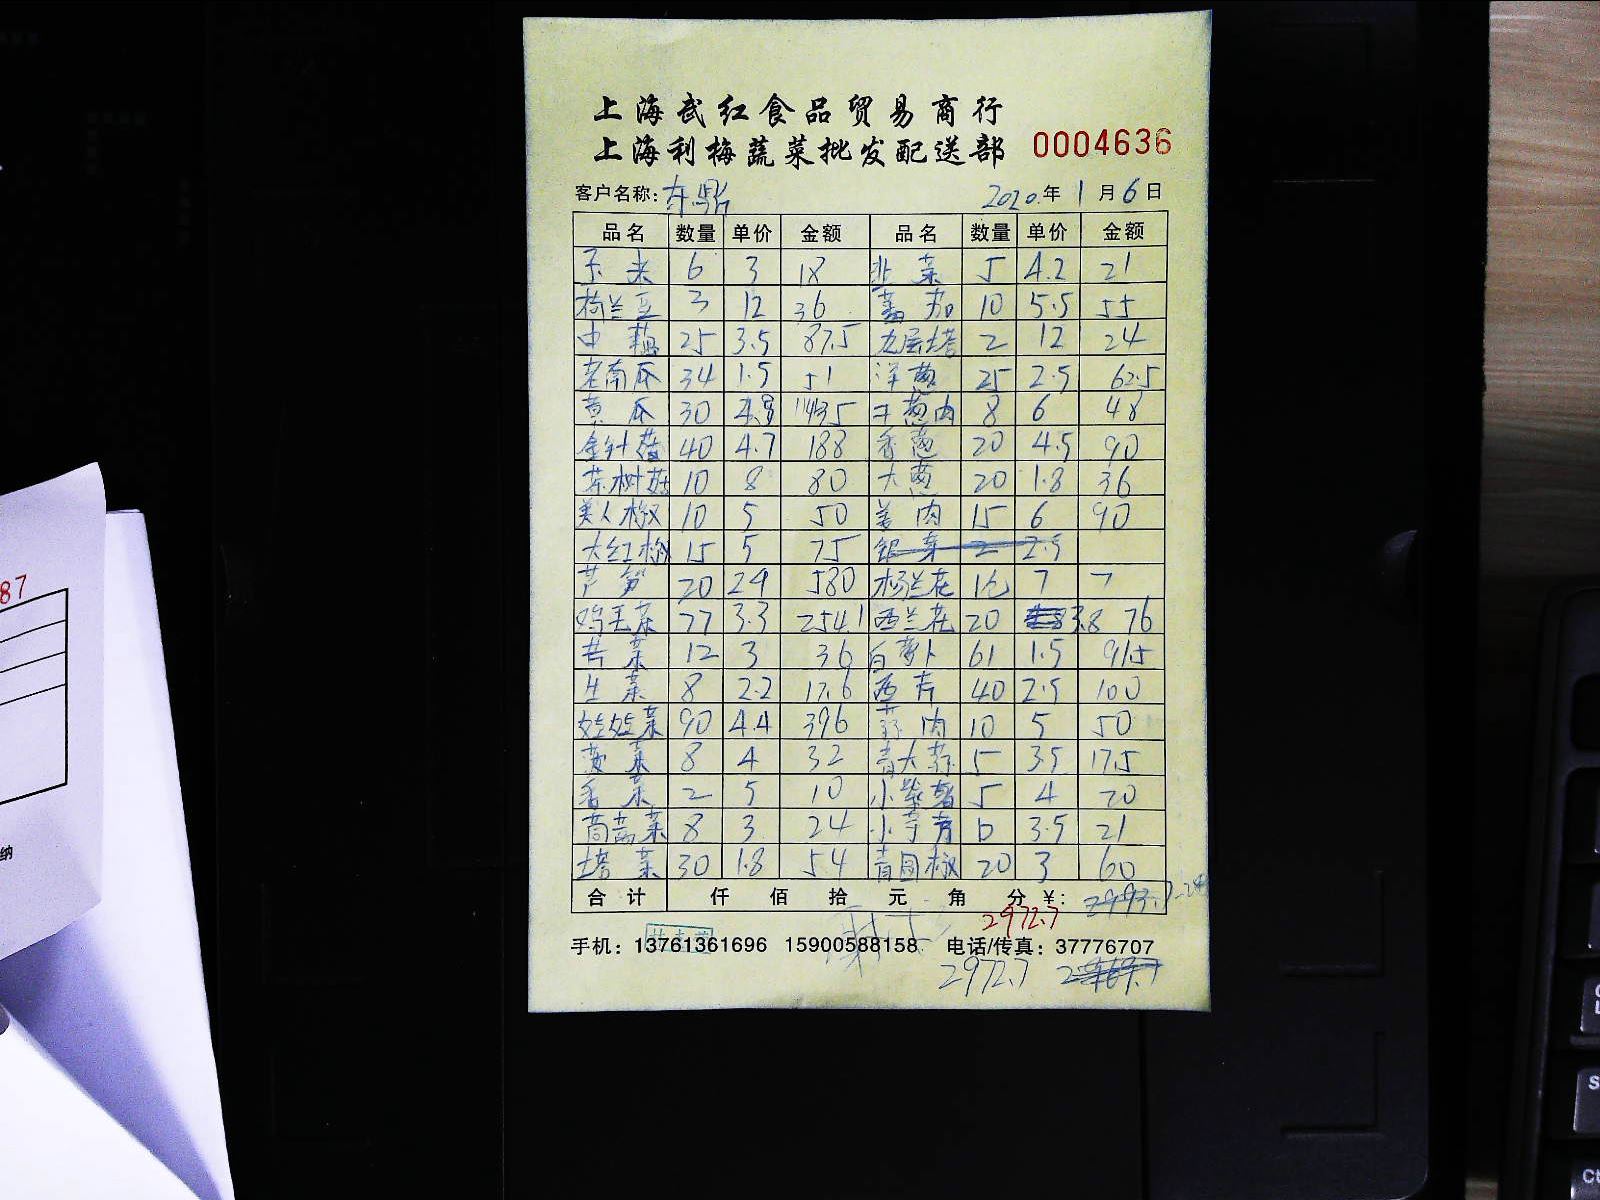 上海武红食品贸易商行
上海利梅蔬菜批发配送部 0004636
客户名称: 东哈 2020年 1月6日
品名 数量 单价 金额 品名 数量 单价 金额
玉米 6 3 18 韭菜 5 4.2 21
荷兰豆 3 12 36 蕃茄 10 5.5 55
中藕 25 3.5 87.5 九层塔 2 12 24
老南瓜 34 1.5 51 洋葱 25 2.5 62.5
黄瓜 30 干葱肉 8 6 48
金针菇 40 4.7 188 香葱 20 4.5 90
茶树菇 10 8 80 大葱 20 1.8 36
美人椒 10 5 50 姜肉 15 6 90
大红椒 15 5 75 银芽 2 2.5
芦笋 20 29 580 杨兰花 1化 7 7
鸡毛菜 77 3.3 254.1 西兰花 20 3.8 76
苦菜 12 3 36 白萝卜 61 1.5 91.5
生菜 8 2.2 17.6 西芹 40 2.5 100
娃娃菜 90 4.4 396 蒜肉 10 5 50
菠菜 8 4 32 青大蒜 5 3.5 17.5
香菜 2 5 10 小紫薯 5 4 20
茼蒿菜 8 3 24 小芋艿 6 3.5 21
塔菜 30 1.8 54 青圆椒 20 3 60
合计 仟 佰 拾 元 角 分 ¥: 2993.7
2972.7
手机: 13761361696 15900588158 电话/传真: 37776707
2972.7
87
纳